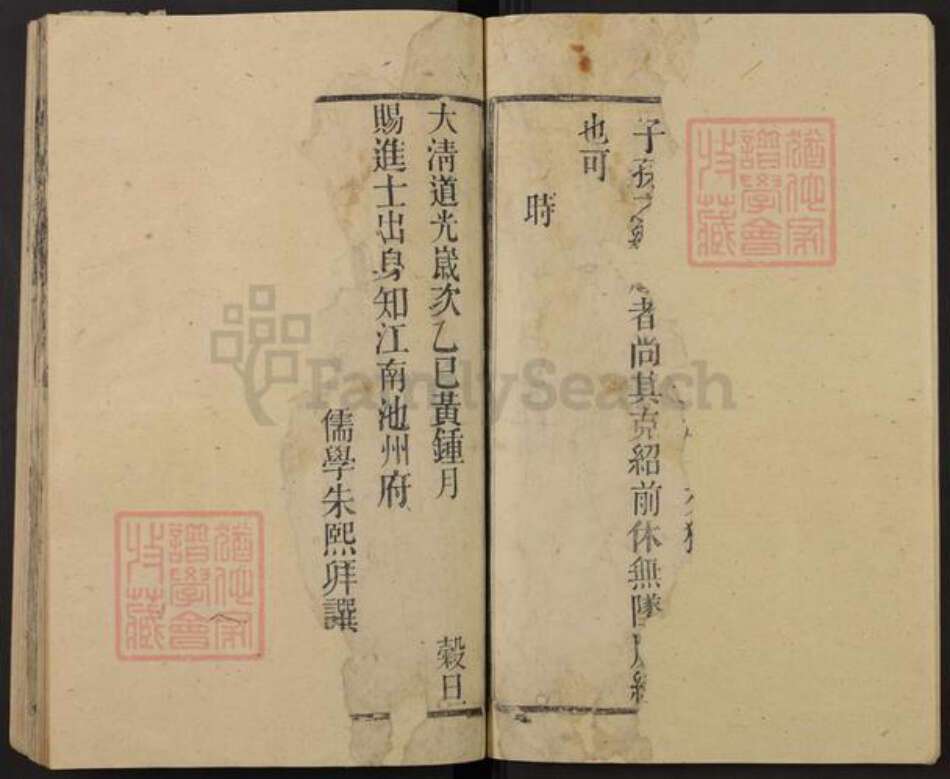 子孫之
者尚其克紹前休無墜
也可
時
大清道光歲次乙巳黃鍾月
穀旦
賜進士出身知江南池州府
儒學朱熙拜譔
譜學會
特藏
譜學會
特藏
FamilySearch